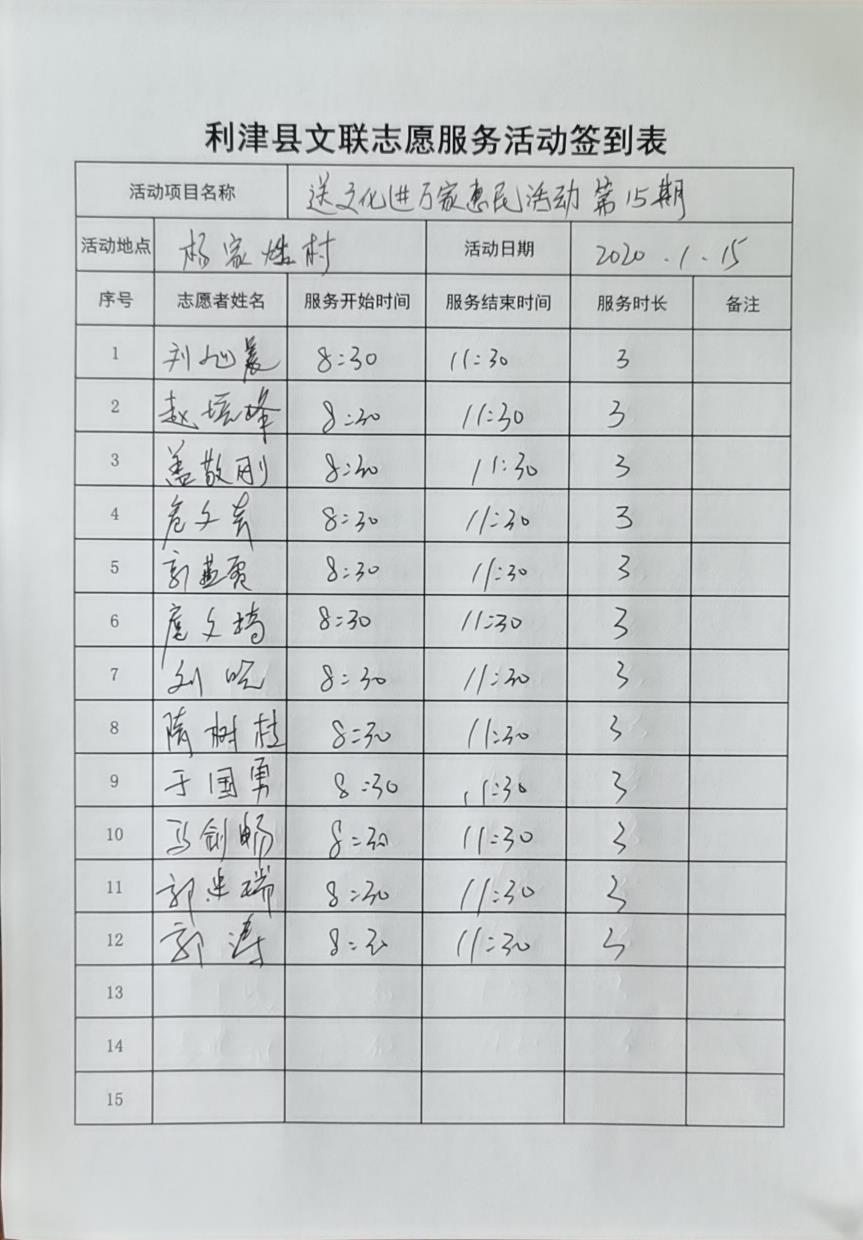 利津县文联志愿服务活动签到表
活动项目名称 送文化进万家惠民活动 第15期
活动地点 杨家 村 活动日期 2020.1.15
序号 志愿者姓名 服务开始时间 服务结束时间 服务时长 备注
1 刘旭晨 8:30 11:30 3
2 赵培峰 8:30 11:30 3
3 盖敬刚 8:30 11:30 3
4 文 8:30 11:30 3
5 郭 8:30 11:30 3
6 文 8:30 11:30 3
7 刘 8:30 11:30 3
8 隋树桂 8:30 11:30 3
9 于国勇 8:30 11:30 3
10 马剑畅 8:30 11:30 3
11 郭 瑞 8:30 11:30 3
12 郭涛 8:30 11:30 3
13
14
15